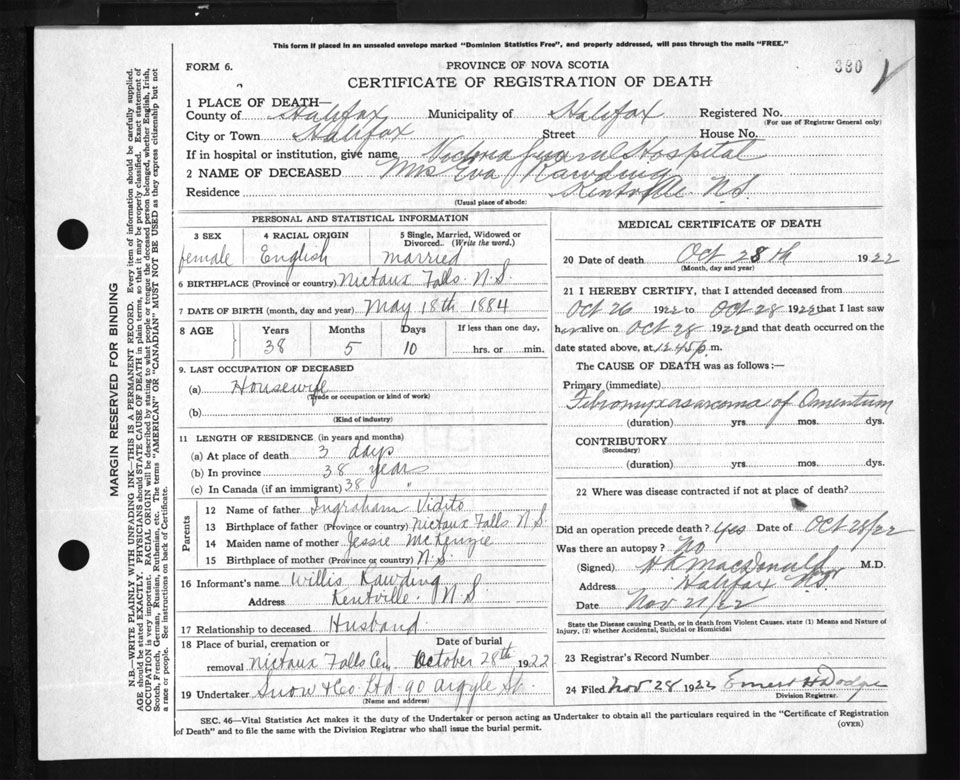 This form if placed in an unsealed envelope marked "Dominion Statistics Free", and properly addressed, will pass through the mails "FREE."
FORM 6.
PROVINCE OF NOVA SCOTIA
380
CERTIFICATE OF REGISTRATION OF DEATH
1 PLACE OF DEATH—
County of Halifax Municipality of Halifax Registered No.
(For use of Registrar General only)
City or Town Halifax Street House No.
If in hospital or institution, give name Victoria General Hospital
2 NAME OF DECEASED Mrs Eva Rawding
Residence Kentville N.S.
(Usual place of abode)
PERSONAL AND STATISTICAL INFORMATION
3 SEX 4 RACIAL ORIGIN 5 Single, Married, Widowed or
Divorced.. (Write the word.)
female English married
6 BIRTHPLACE (Province or country) Nictaux Falls N.S.
7 DATE OF BIRTH (month, day and year) May 18th 1884
8 AGE Years Months Days If less than one day,
38 5 10 hrs. or min.
9. LAST OCCUPATION OF DECEASED
(a) Housewife
(Trade or occupation or kind of work)
(b)
(Kind of industry)
11 LENGTH OF RESIDENCE (in years and months)
(a) At place of death 3 days
(b) In province 38 years
(c) In Canada (if an immigrant) 38 "
Parents
12 Name of father Ingraham Vidito
13 Birthplace of father (Province or country) Nictaux Falls N.S.
14 Maiden name of mother Jessie McKenzie
15 Birthplace of mother (Province or country) N.S.
16 Informant's name Willis Rawding
Address Kentville N.S.
17 Relationship to deceased Husband
18 Place of burial, cremation or Date of burial
removal Nictaux Falls Cem. October 28th 1922
19 Undertaker Snow & Co Ltd 90 Argyle St.
(Name and address)
MEDICAL CERTIFICATE OF DEATH
20 Date of death Oct 28th 1922
(Month, day and year)
21 I HEREBY CERTIFY, that I attended deceased from
Oct 26 1922 to Oct 28 1922 that I last saw
her alive on Oct 28 1922 and that death occurred on the
date stated above, at 12.45 p.m.
The CAUSE OF DEATH was as follows:—
Primary (immediate)
Fibromyxasarcoma of Omentum
(duration) yrs. mos. dys.
CONTRIBUTORY
(Secondary)
(duration) yrs. mos. dys.
22 Where was disease contracted if not at place of death?
Did an operation precede death? Yes Date of Oct 28/22
Was there an autopsy? No
(Signed) MacDonald M.D.
Address Halifax N.S.
Date Nov 21/22
State the Disease causing Death, or in death from Violent Causes, state (1) Means and Nature of
Injury, (2) whether Accidental, Suicidal or Homicidal
23 Registrar's Record Number
24 Filed Nov 28 1922 Ernest H Dodge
Division Registrar.
SEC. 46—Vital Statistics Act makes it the duty of the Undertaker or person acting as Undertaker to obtain all the particulars required in the "Certificate of Registration
of Death" and to file the same with the Division Registrar who shall issue the burial permit.
(OVER)
MARGIN RESERVED FOR BINDING
N.B.—WRITE PLAINLY WITH UNFADING INK—THIS IS A PERMANENT RECORD. Every item of information should be carefully supplied.
AGE should be stated EXACTLY. PHYSICIANS should STATE CAUSE OF DEATH in plain terms, so that it may be properly classified. Exact statement of
OCCUPATION is very important. RACIAL ORIGIN will be described by stating to what people or tongue the deceased person belonged, whether English, Irish,
Scotch, French, German, Russian, Ruthenian, etc. The terms "AMERICAN" OR "CANADIAN" MUST NOT BE USED as they express citizenship but not
a race or people. See instructions on back of Certificate.